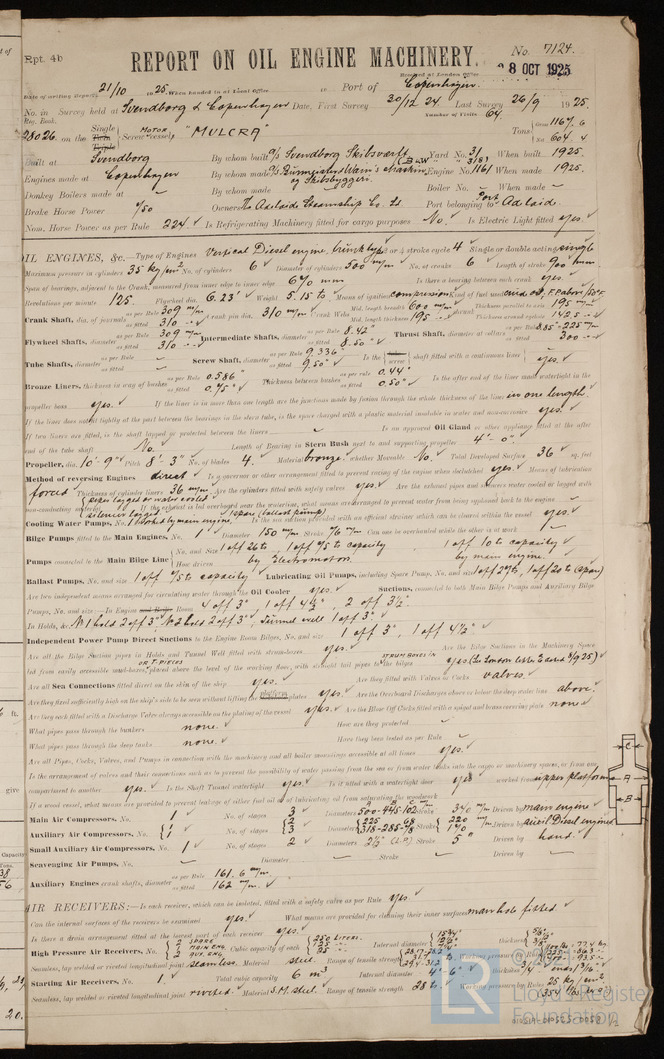 Rpt. 4b
REPORT ON OIL ENGINE MACHINERY.
No. 7124.
Received at London Office
8 OCT 1925
Date of writing Report 21/10 1925 When handed in at Local Office 19 Port of Copenhagen.
No. in Survey held at Svendborg & Copenhagen Date, First Survey 30/12 24 Last Survey 26/9 1925.
Reg. Book. Number of Visits 64.
28026. on the Single Twin Triple Screw Motor vessel "MULCRA"
Tons Gross 1167.6 Net 604.
Built at Svendborg By whom built A/s Svendborg Skibsværft Yard No. 31 When built 1925.
Engines made at Copenhagen By whom made A/s Burmeister & Wain's Maskin og Skibsbyggeri. Engine No. 1161 When made 1925.
Donkey Boilers made at By whom made Boiler No. When made
Brake Horse Power 750 Owners The Adelaide Steamship Co. Ld Port belonging to Port Adelaide
Nom. Horse Power as per Rule 224 Is Refrigerating Machinery fitted for cargo purposes No. Is Electric Light fitted yes.
OIL ENGINES, &c.—Type of Engines Vertical Diesel engine, trunk type 2 or 4 stroke cycle 4 Single or double acting single
Maximum pressure in cylinders 35 kg/cm² No. of cylinders 6 Diameter of cylinders 500 m/m No. of cranks 6 Length of stroke 900 m/m
Span of bearings, adjacent to the Crank, measured from inner edge to inner edge 670 m/m Is there a bearing between each crank yes.
Revolutions per minute 125 Flywheel dia. 6.23' Weight 5.15 ts. Means of ignition compression Kind of fuel used
Crank Shaft, dia. of journals as per Rule 309 m/m as fitted 310 Crank pin dia. 310 m/m Crank Webs Mid. length breadth 600 m/m Mid. length thickness 195 Thickness parallel to axis 195 m/m Thickness around eyehole 142.5
Flywheel Shafts, diameter as per Rule 309 m/m as fitted 310 Intermediate Shafts, diameter as per Rule 8.42" as fitted 8.50" Thrust Shaft, diameter at collars as per Rule 8.85"-225 m/m as fitted 300
Tube Shafts, diameter as per Rule as fitted Screw Shaft, diameter as per Rule 9.336" as fitted 9.50" Is the screw shaft fitted with a continuous liner yes.
Bronze Liners, thickness in way of bushes as per Rule 0.586" as fitted 0.75" Thickness between bushes as per rule 0.44" as fitted 0.50" Is the after end of the liner made watertight in the
propeller boss yes. If the liner is in more than one length are the joints made by fusion through the whole thickness of the liner in one length.
If the liner does not fit tightly at the part between the bearings in the stern tube, is the space charged with a plastic material insoluble in water and non-corrosive yes.
If two liners are fitted, is the shaft lapped or protected between the liners Is an approved Oil Gland or other appliance fitted at the after
end of the tube shaft No. Length of Bearing in Stern Bush next to and supporting propeller 4'-0"
Propeller, dia. 10'-9" Pitch 8'-3" No. of blades 4. Material bronze whether Moveable No. Total Developed Surface 36 sq. feet
Method of reversing Engines direct Is a governor or other arrangement fitted to prevent racing of the engine when declutched yes. Means of lubrication
forced Thickness of cylinder liners 36 m/m Are the cylinders fitted with safety valves yes. Are the exhaust pipes and silencers water cooled or lagged with
non-conducting material pipes lagged or water cooled silencer lagged. If the exhaust is led overboard near the waterline, what means are arranged to prevent water from being syphoned back to the engine
Cooling Water Pumps, No. 1 worked by main engine, 1 spare (ballast pump) Is the sea suction provided with an efficient strainer which can be cleared within the vessel yes.
Bilge Pumps fitted to the Main Engines, No. 1 Diameter 150 m/m Stroke 76 m/m Can one be overhauled while the other is at work
Pumps connected to the Main Bilge Line No. and Size 1 off 26 ts, 1 off 75 ts capacity 1 off 10 ts capacity
How driven by Electromotor. by main engine.
Ballast Pumps, No. and size 1 off 75 ts capacity Lubricating Oil Pumps, including Spare Pump, No. and size 1 off 20 ts, 1 off 20 ts (spare)
Are two independent means arranged for circulating water through the Oil Cooler yes. Suctions, connected to both Main Bilge Pumps and Auxiliary Bilge
Pumps, No. and size:—In Engine Room 4 off 3", 1 off 4½", 2 off 3½".
In Holds, &c. No 1 hold 2 off 3". No 2 hold 2 off 3". Tunnel well 1 off 3".
Independent Power Pump Direct Suctions to the Engine Room Bilges, No. and size 1 off 3", 1 off 4½"
Are all the Bilge Suction pipes in Holds and Tunnel Well fitted with strum-boxes yes. Are the Bilge Suctions in the Machinery Space
led from easily accessible mud-boxes, or T. pieces placed above the level of the working floor, with straight tail pipes to the bilges yes (see London letter E dated 8/9 25)
Are all Sea Connections fitted direct on the skin of the ship yes. Are they fitted with Valves or Cocks valves.
Are they fixed sufficiently high on the ship's side to be seen without lifting the platform plates yes. Are the Overboard Discharges above or below the deep water line above.
Are they each fitted with a Discharge Valve always accessible on the plating of the vessel yes. Are the Blow Off Cocks fitted with a spigot and brass covering plate none
What pipes pass through the bunkers none. How are they protected
What pipes pass through the deep tanks none. Have they been tested as per Rule
Are all Pipes, Cocks, Valves, and Pumps in connection with the machinery and all boiler mountings accessible at all times yes.
Is the arrangement of valves and their connections such as to prevent the possibility of water passing from the sea or from water tanks into the cargo or machinery spaces, or from one
compartment to another yes. Is the Shaft Tunnel watertight yes. Is it fitted with a watertight door yes worked from upper platform
If a wood vessel, what means are provided to prevent leakage of either fuel oil or lubricating oil from saturating the woodwork
Main Air Compressors, No. 1 No. of stages 3 Diameters 500-445-102 m/m Stroke 340 m/m Driven by main engine
Auxiliary Air Compressors, No. 1 1 No. of stages 2 3 Diameters 225-68 318-285-78 Stroke 220 170 m/m Driven by auxil Diesel engines
Small Auxiliary Air Compressors, No. 1 No. of stages 2 Diameters 2½" Stroke 5" Driven by hand.
Scavenging Air Pumps, No. Diameter Stroke Driven by
Auxiliary Engines crank shafts, diameter as per Rule 161.6 m/m as fitted 162 m/m.
AIR RECEIVERS:—Is each receiver, which can be isolated, fitted with a safety valve as per Rule yes
Can the internal surfaces of the receivers be examined yes. What means are provided for cleaning their inner surfaces manhole fitted.
Is there a drain arrangement fitted at the lowest part of each receiver yes.
High Pressure Air Receivers, No. 2 SPARE 1 MAIN ENG. 2 AUX. ENG. Cubic capacity of each 250 LITERS. Internal diameter thickness
Seamless, lap welded or riveted longitudinal joint seamless. Material steel. Range of tensile strength Working pressure by Rules
Starting Air Receivers, No. 1. Total cubic capacity 6 m³ Internal diameter 4'-6" thickness
Seamless, lap welded or riveted longitudinal joint riveted. Material S.M. steel. Range of tensile strength 28 ts. Working pressure by Rules 25 kg/cm²
C
A
B
© 2021
LR
Lloyd's Register
Foundation